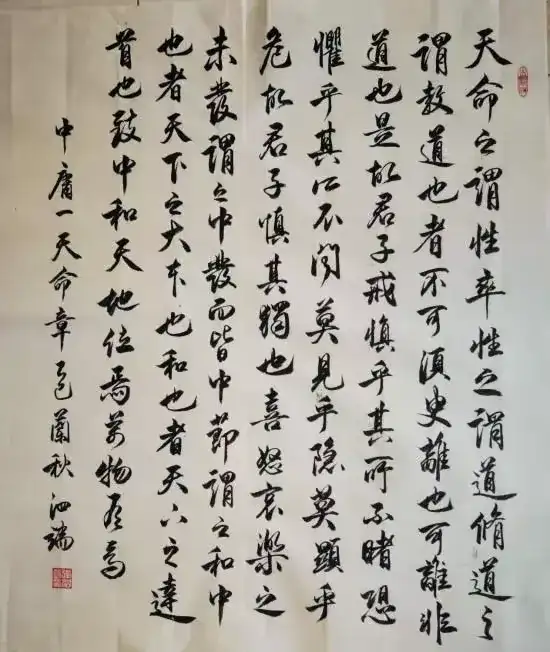 天命之謂性率性之謂道脩道之
謂教道也者不可須臾離也可離非
道也是故君子戒慎乎其所不睹恐
懼乎其所不聞莫見乎隐莫顯乎
危故君子慎其獨也喜怒哀樂之
未發謂之中發而皆中節謂之和中
也者天下之大本也和也者天下之達
首也致中和天地位焉萬物育焉
中庸一天命章蘭秋泗端